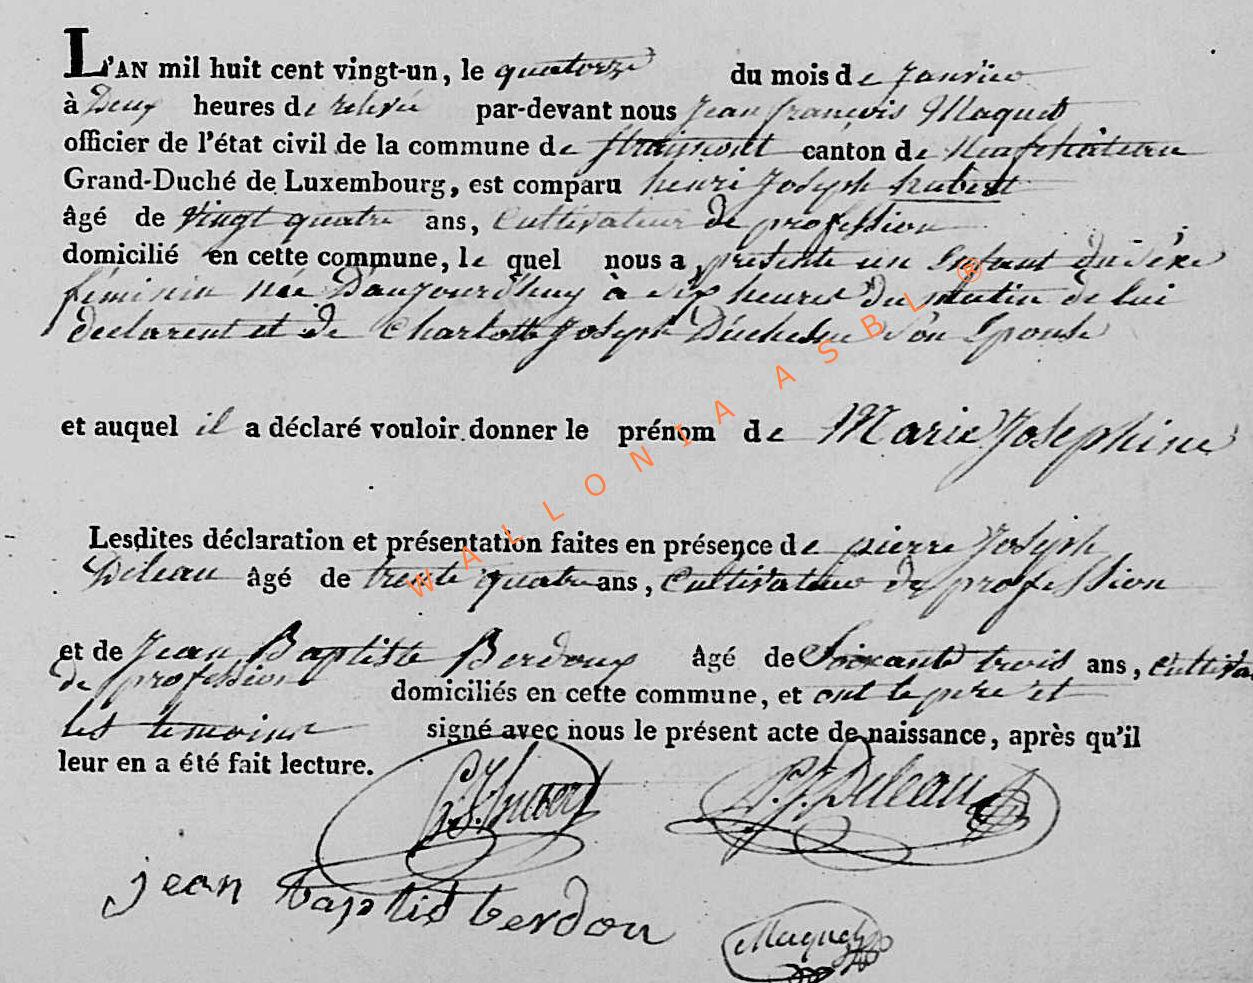 L'AN mil huit cent vingt-un, le quatorze du mois de Janvier
à Deux heures de relevée par-devant nous Jean françois Maquet
officier de l'état civil de la commune de straimont canton de Neufchâteau
Grand-Duché de Luxembourg, est comparu henri Joseph hubert
âgé de Vingt quatre ans, Cultivateur de profession
domicilié en cette commune, le quel nous a présenté un Enfant du séxe
féminin née D'aujourdhuy à six heures Du matin de lui
declarent et de Charlotte Joseph Duchesne son Epouse
et auquel il a déclaré vouloir donner le prénom de Marie Josephine
Lesdites déclaration et présentation faites en présence de pierre Joseph
Deleau âgé de trente quatre ans, Cultivateur de profession
et de Jean Baptiste Berdoux âgé de Soixante trois ans, Cultiva
de profession domiciliés en cette commune, et ont le père et
les temoins signé avec nous le présent acte de naissance, après qu'il
leur en a été fait lecture.
hubert P. J. Deleau
jean baptist berdou
Maquet
WALLONIA ASBL ®